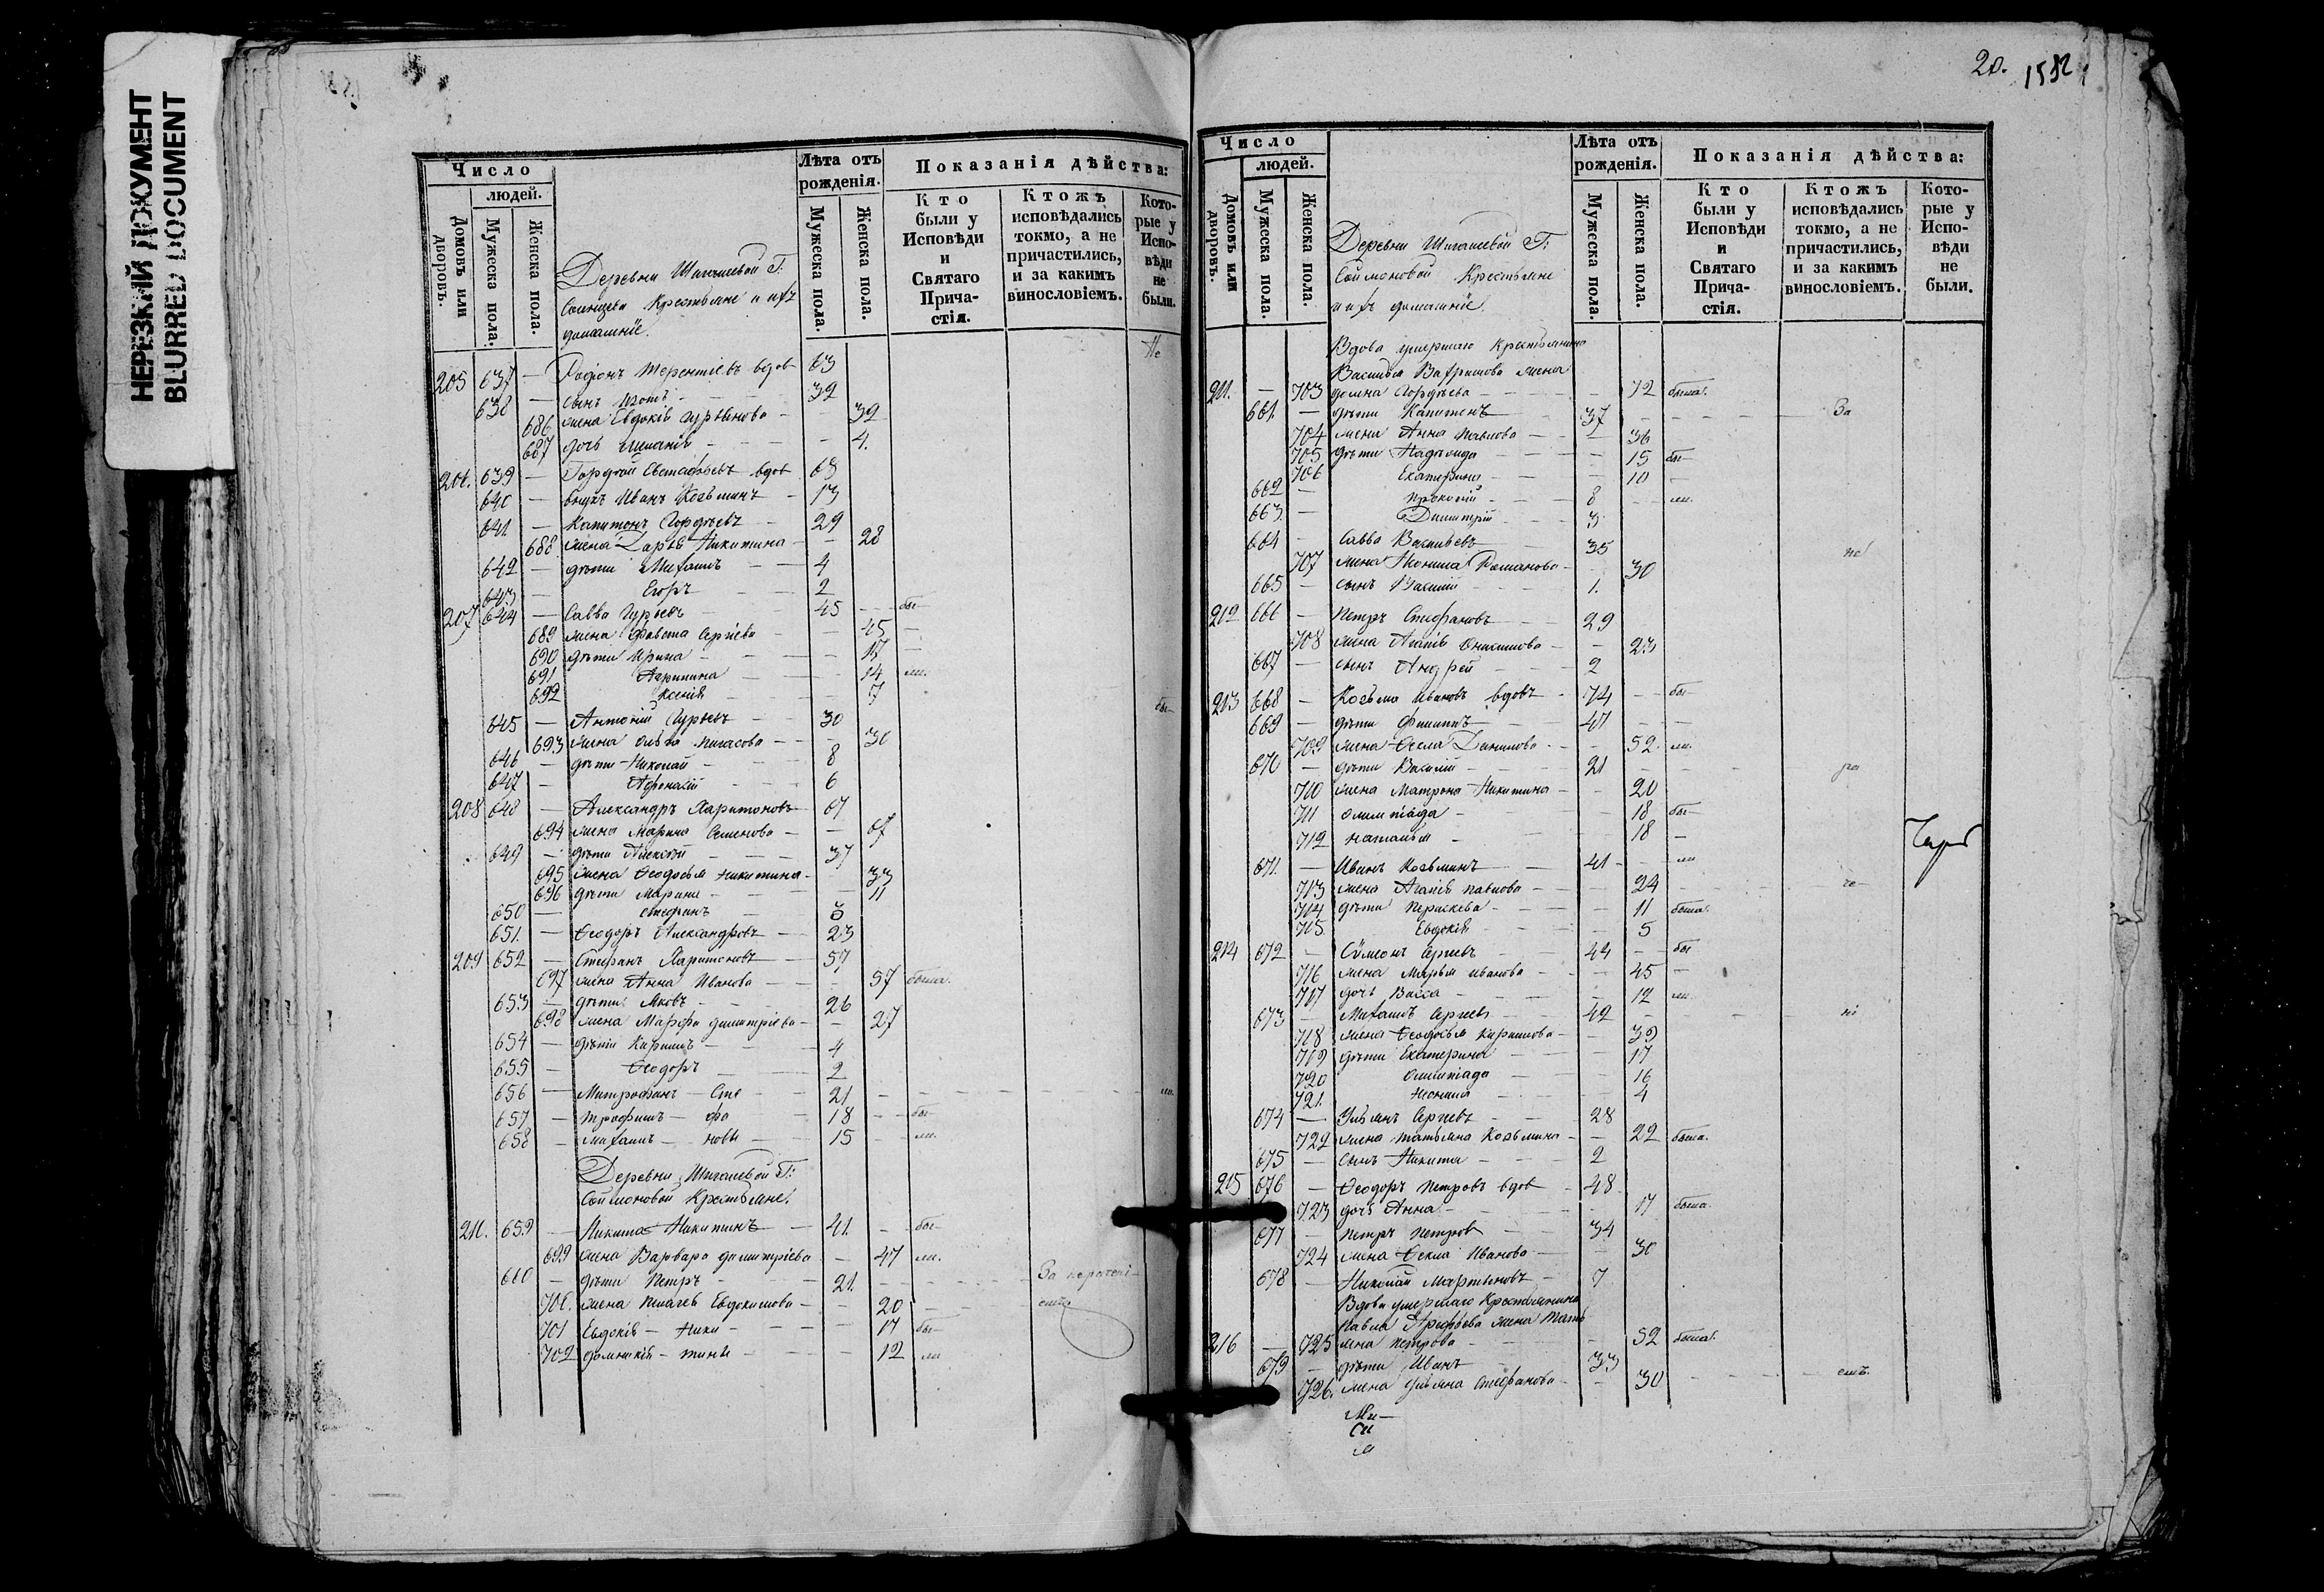 НЕРЕЗКИЙ ДОКУМЕНТ
BLURRED DOCUMENT
Число
людей.
Домовъ или дворовъ.
Мужеска пола.
Женска пола.
Лѣта отъ рожденія.
Мужеска пола.
Женска пола.
Показанія дѣйства:
Кто были у Исповѣди и Святаго Прича-стія.
Ктожъ исповѣдались токмо, а не причастились, и за какимъ винословіемъ.
Кото-рые у Испо-вѣди не были.
Деревни
Крестьяне и ихъ
домашніе.
Не
205 637 — Родіонъ Терентіевъ вдов 63
638 — сынъ Изотъ 39
686 жена Евдокія 39
687 дочь 4.
206. 639 — Гордѣй Евстафьевъ вдов 68
640 — внукъ Иванъ Козьминъ 13
641. — Капитонъ Гордѣевъ 29
688 жена Дарья Никитина 28
642 — дѣти Михаилъ 4
643 — Егоръ 2
207 644 — Савва Гурьевъ 45 бы
689 жена Фавста Сергіева 45
690 дѣти Ирина 17
691 Агрипина 14 ли.
692 Ксенія 7
645 — Антоній Гурьевъ 30 бы
693 жена Ольга 30
646 — дѣти Николай 8
647 — Афонасій 6
208 648 — Александръ Харитоновъ 67
694 жена Марина Семенова 67
649 — дѣти Алексѣй 37
695 жена Ѳеодосья Никитина 33
696 дѣти Марина 11
650 — Стефанъ
651. — Ѳеодоръ Александровъ 23
209 652 — Стефанъ Харитоновъ 57
697 жена Анна Иванова 57 была.
653 — дѣти Яковъ 26
698 жена Марфа Димитріева 27
654 — дѣти Кирилъ 4
655 — Ѳеодоръ 2
656 — Митрофанъ — Сте 21 ли.
657 — Трофимъ — фа 18 бы
658 — Михаилъ — новы 15 ли.
Деревни
Крестьяне.
659 — Никита Никитинъ 41. бы
699 жена Варвара Димитріева 47 ли.
660 — дѣти Петръ 21. За нерачені
700. жена Пелагея Евдокимова 20 емъ.
701 Евдокія — Ники 17 бы
702 Домникія — тины 12 ли
20. 1582
Число
людей.
Домовъ или дворовъ.
Мужеска пола.
Женска пола.
Лѣта отъ рожденія.
Мужеска пола.
Женска пола.
Показанія дѣйства:
Кто были у Исповѣди и Святаго Прича-стія.
Ктожъ исповѣдались токмо, а не причастились, и за какимъ винословіемъ.
Кото-рые у Испо-вѣди не были.
Деревни
Крестьяне
и ихъ домашніе.
Вдова умершаго Крестьянина
Василья жена
211. — 703 Домна Гордѣева 72 была.
661. — дѣти Капитонъ 37 За
704 жена Анна Павлова 36
705 дѣти 15 бы
706 Екатерина 10
662 — Прокопій 8 ли.
663. — Димитрій 3
664 — Савва Васильевъ 35 не
707 жена Романова 30
665 — сынъ Василій 1.
212 666 — Петръ Стефановъ 29
708 жена Агапія Онисимова 23
667 — сынъ Андрей 2
213 668 — Козьма Ивановъ вдовъ 74 бы
669 — дѣти Филипъ 47
709 жена Ѳекла Данилова 52 ли.
670 — дѣти Василій 21 ра
710 жена Матрона Никитина 20
711 Олимпіада 18 бы
712 Наталья 18
671. — Иванъ Козьминъ 41 ли
713 жена Агапія Павлова 24 че
714 дѣти Параскева 11 была.
715 Евдокія 5
214 672 — Симеонъ Сергіевъ 44 бы
716 жена Марья Иванова 45
717 дочь Васса 12 ли.
673 — Михаилъ Сергіевъ 42 ні
718 жена Ѳеодосья Кирилова 39
719 дѣти Екатерина 17
720 Олимпіада 16
721. Неонила 4
674 — Ульянъ Сергіевъ 28
722 жена Татьяна Козьмина 22 была.
675 — сынъ Никита 2
215 676 — Ѳеодоръ Петровъ вдов 48
723 дочь Анна 17 была.
677 — Петръ Петровъ 34
724 жена Ѳекла Иванова 30
678 — Николай Мартыновъ 7
Вдова умершаго Крестьянина
Павла жена Тать
216 — 725 яна Петрова 52 была.
679 — дѣти Иванъ 33
726. жена Ульяна Стефанова 30 емъ.